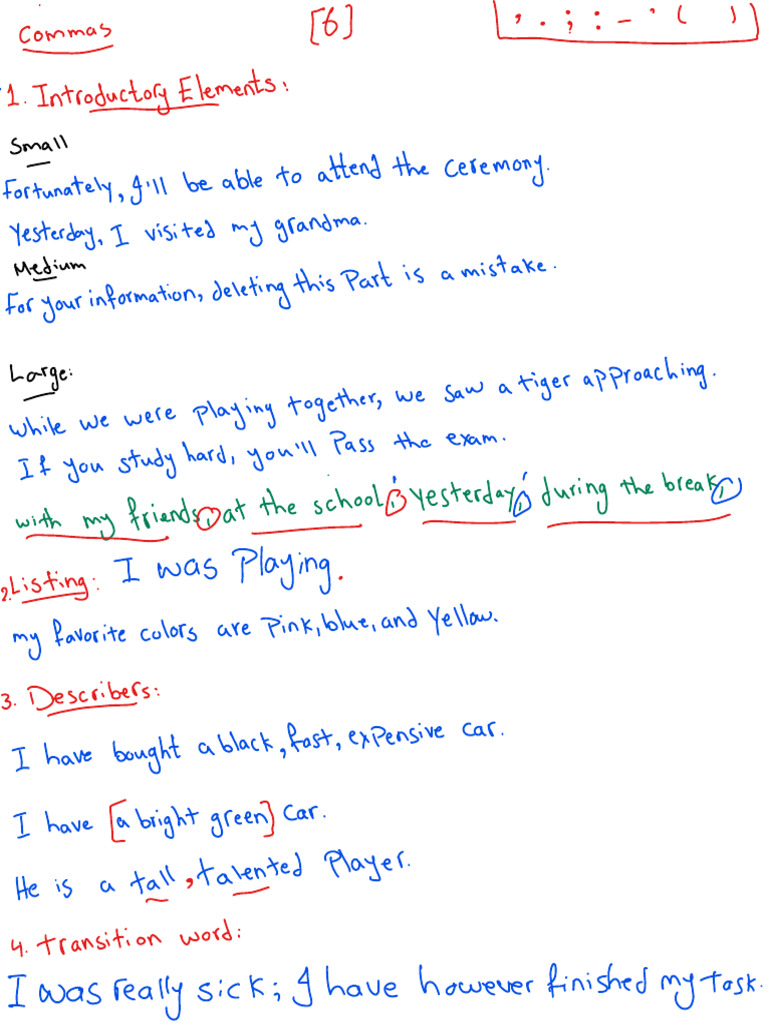 Commas [6] , . ; : - ' ( )
1. Introductory Elements:
Small
Fortunately, I'll be able to attend the ceremony.
Yesterday, I visited my grandma.
Medium
For your information, deleting this Part is a mistake.
Large:
While we were playing together, we saw a tiger approaching.
If you study hard, you'll Pass the exam.
with my friends, at the school, yesterday, during the break,
2. Listing: I was Playing.
my favorite colors are Pink, blue, and Yellow.
3. Describers:
I have bought a black, fast, expensive car.
I have [a bright green] car.
He is a tall, talented Player.
4. transition word:
I was really sick; I have however finished my task.